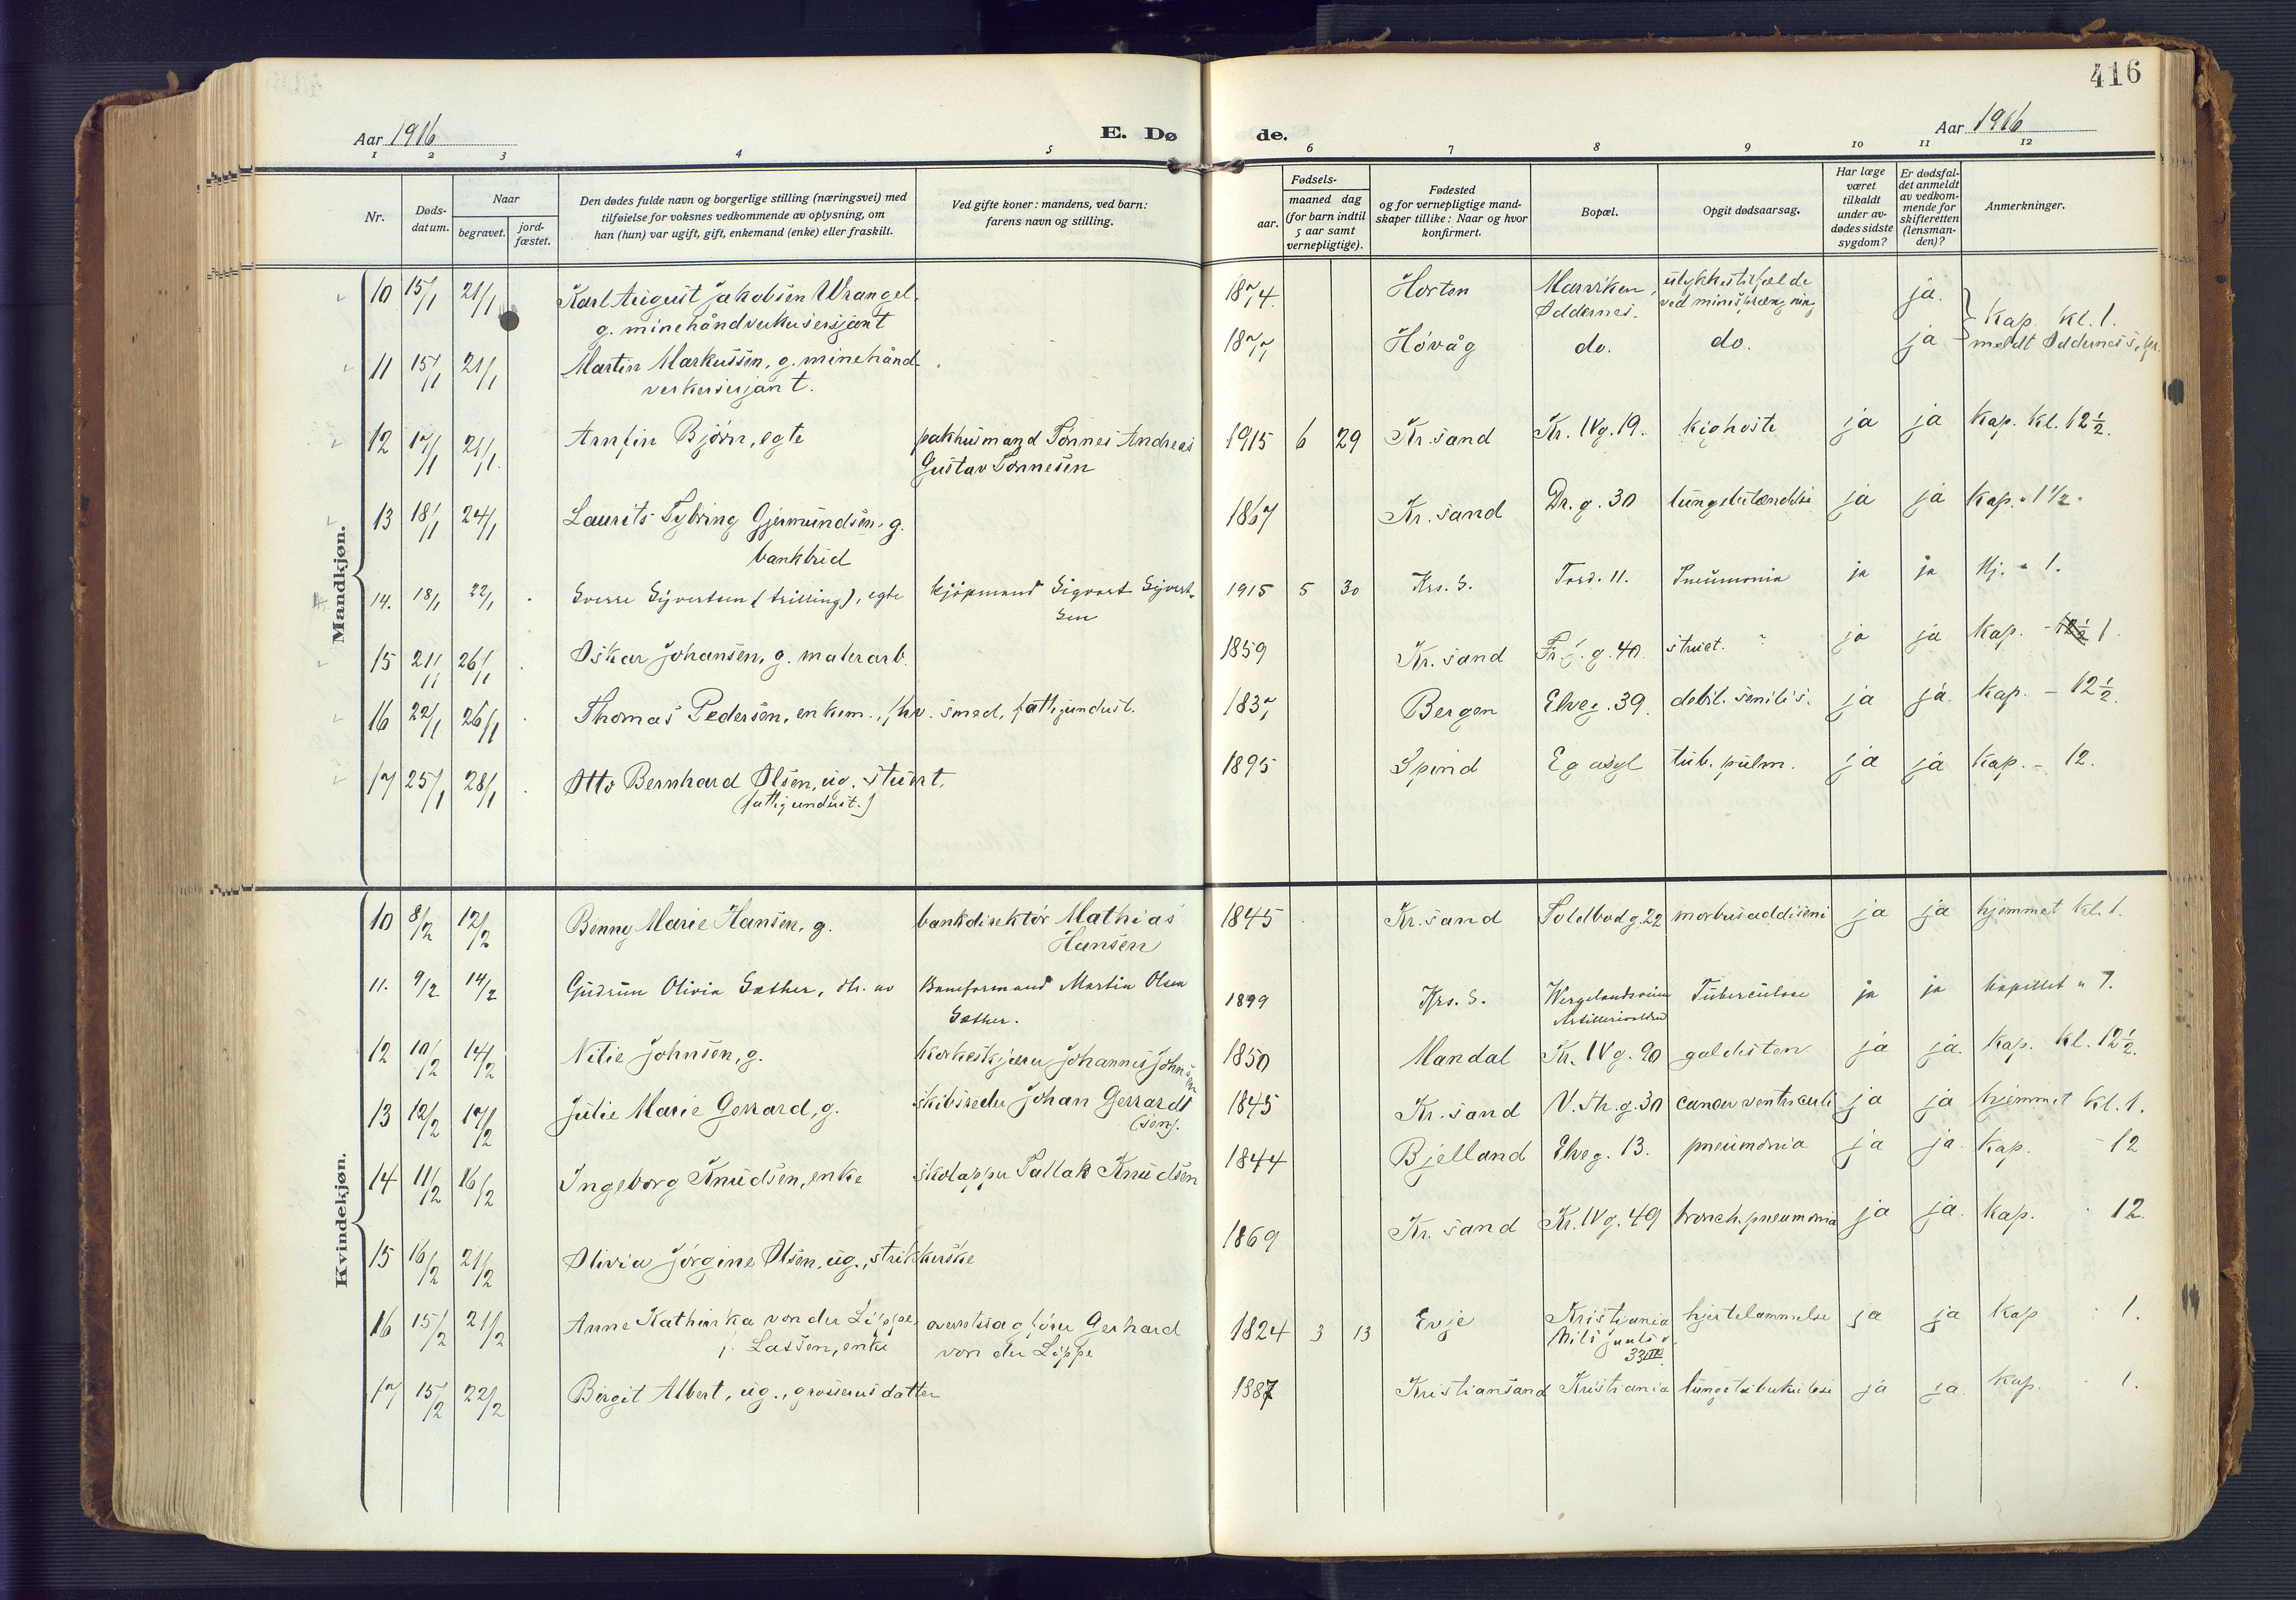 416
Aar 1916 E. Dø de. Aar 1916
1 2 3 4 5 6 7 8 9 10 11 12
Nr.
Døds-
datum.
Naar
begravet.
jord-
fæstet.
Den dødes fulde navn og borgerlige stilling (næringsvei) med
tilføielse for voksnes vedkommende av oplysning, om
han (hun) var ugift, gift, enkemand (enke) eller fraskilt.
Ved gifte koner: mandens, ved barn:
farens navn og stilling.
Fødsels-
aar.
maaned dag
(for barn indtil
5 aar samt
vernepligtige).
Fødested
og for vernepligtige mand-
skaper tillike: Naar og hvor
konfirmert.
Bopæl.
Opgit dødsaarsag.
Har læge
været
tilkaldt
under av-
dødes sidste
sygdom?
Er dødsfal-
det anmeldt
av vedkom-
mende for
skifteretten
(lensman-
den)?
Anmerkninger.
Mandkjøn.
10 15/1 21/1 Karl August Jakobsen Wrangel, 1874. Horten Marviken, ulykkestilfælde ja.
g. minehåndverkersersjant Oddernes. ved minesprængning
Kap. kl. 1.
11 15/1 21/1 Martin Markussen, g. minehånd- 1877 Høvåg do. do. ja meldt Oddernes s.pr.
verkersersjant.
12 17/1 21/1. Arnfin Bjørn, egte pakhusmand Tønnes Andreas 1915 6 29 Kr.sand Kr. IVg. 19. kighoste ja ja Kap. kl. 12 1/2.
Gustav Tønnesen
13 18/1 24/1 Laurits Tybring Gjermundsen, g. 1867 Kr. sand Dr. g. 30 lungebetændelse ja ja Kap. " 1 1/2.
bankbud
14. 18/1 22/1 Sverre Sijvertsen (trilling), egte kjøpmand Sigvart Sijvert- 1915 5 30 Krs. S. Tord. 11. Pneumonia ja ja Hj. " 1.
sen
15 21/1 26/1 Oskar Johansen, g. malerarb. 1859 Kr. sand g. 40. struet. ja ja Kap. - 12 1/2 1.
16 22/1 26/1 Thomas Pedersen, enkem., fhv. smed, fattigunderst. 1837 Bergen Elveg. 39. debil. senilis. ja ja. Kap. - 12 1/2.
17 25/1 28/1 Otto Bernhard Olsen, ug. stuert, 1895 Spind Eg asyl tub. pulm. ja ja Kap. - 12.
(fattigunderst.)
Kvindekjøn.
10 8/2 12/2 Benny Marie Hansen, g. bankdirektør Mathias 1845 Kr.sand Toldbodg. 22 morbus addisoni ja ja hjemmet kl. 1.
Hansen
11. 9/2 14/2 Gudrun Olivia Sæther, dtr. av Baneformand Martin Olsen 1899 Krs. S. Wergelandsveien Tuberculose ja ja kapellet " 1.
Sæther. Artillerivolden
12 10/2 14/2 Netie Johnsen, g. korkeskjærer Johannes Johnsen 1850 Mandal Kr. IVg. 90 galdesten ja ja. Kap. kl. 12 1/2.
13 12/2 17/2 Julie Marie Gerrard, g. skibsreder Johan Gerrard 1845 Kr. sand V. Str. g. 30 cancer ventriculi ja ja hjemmet kl. 1.
(sen).
14 11/2 16/2 Ingeborg Knudsen, enke skolapper Tallak Knudsen 1844 Bjelland Elveg. 13. pneumonia ja ja. Kap. - 12
15 16/2 21/2 Olivia Jørgine Olsen, ug., strikkerske 1869 Kr. sand Kr. IVg. 49 bronch. pneumonia ja ja. Kap. 12.
16 15/2 21/2 Anne Kathinka von der Lippe, overretssagfører Gerhard 1824 3 13 Evje Kristiania hjertelammelse ja ja Kap 1.
f. Lassen, enke von der Lippe Nils Juuls g.
33 III.
17 15/2 22/2 Birgit Albert, ug., grosserersdatter 1887 Kristiansand Kristiania lungetuberkulose ja ja Kap. 1.